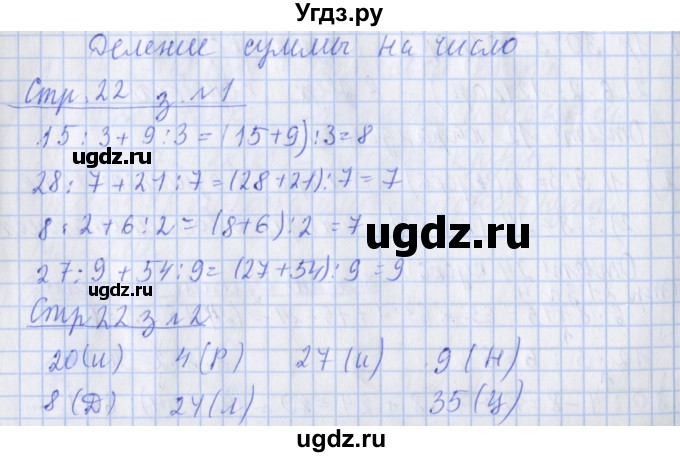 Угдз.ру
Деление суммы на число
Стр. 22 з. №1
15 : 3 + 9 : 3 = (15+9) : 3 = 8
ugdz.ru
28 : 7 + 21 : 7 = (28+21) : 7 = 7
8 : 2 + 6 : 2 = (8+6) : 2 = 7
ugdz.ru
27 : 9 + 54 : 9 = (27+54) : 9 = 9
ugdz.ru
Стр 22 з №2
20 (И) 4 (Р) 27 (И) 9 (Н)
ugdz.ru
8 (Д) 24 (Л) 35 (Ц)
ugdz.ru